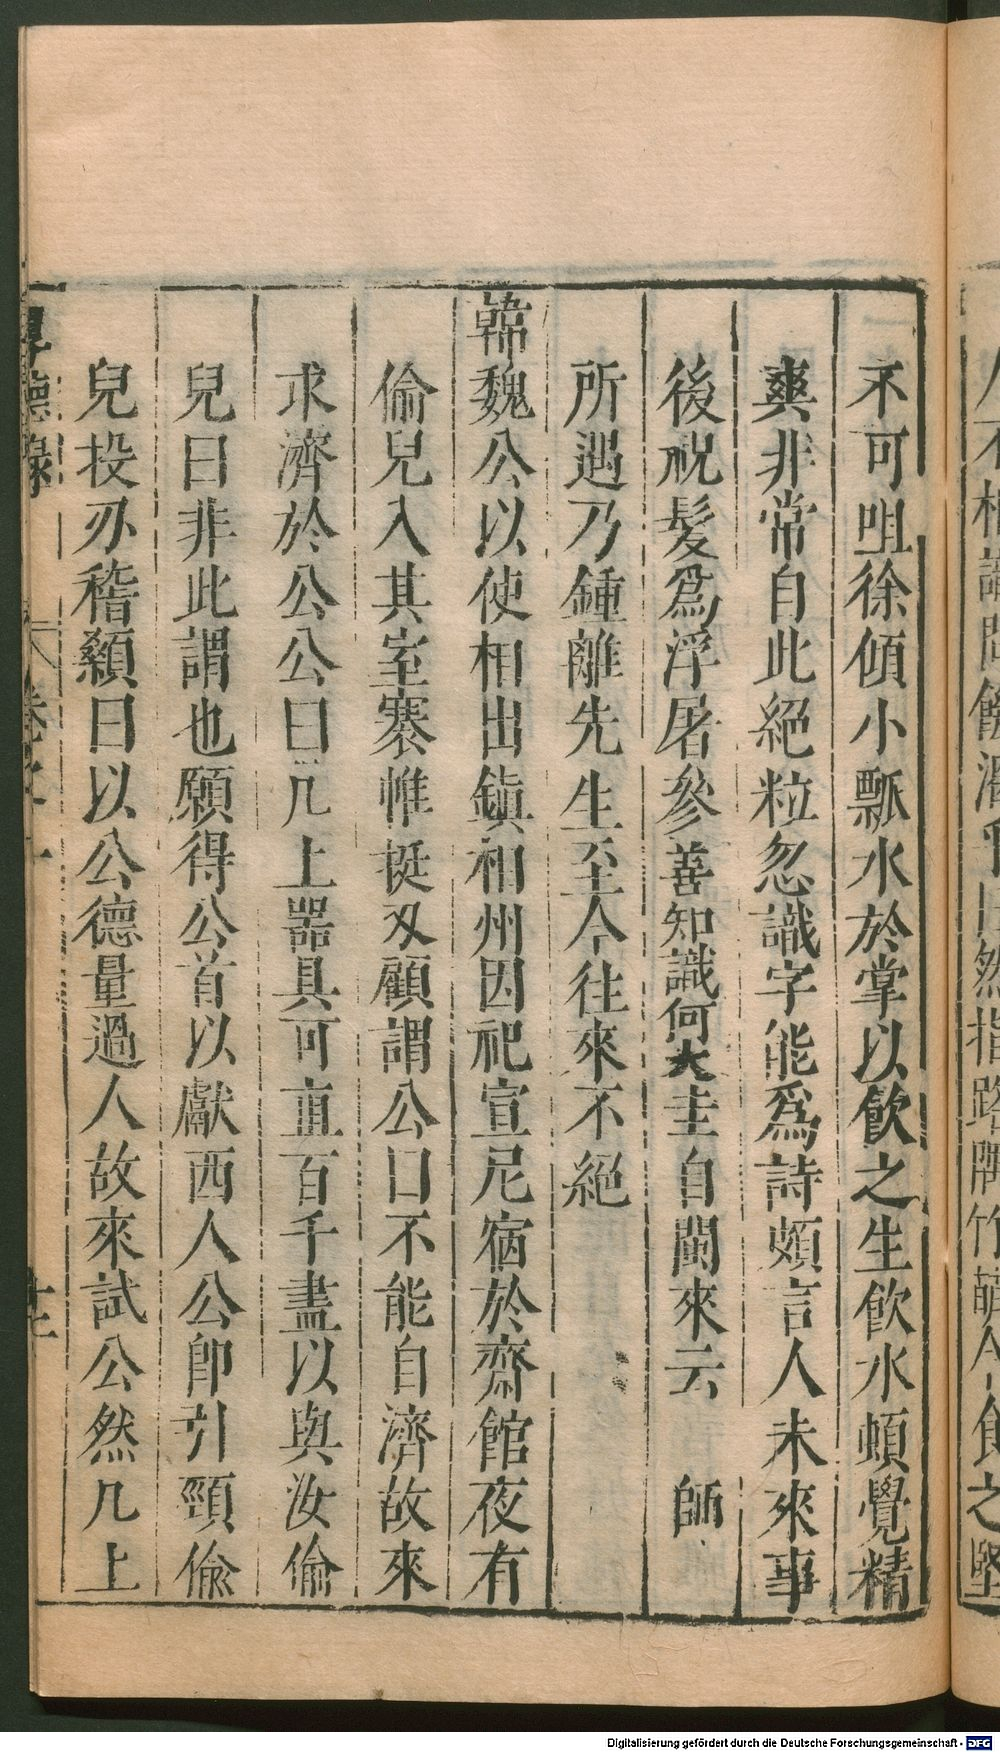 不可咀徐傾小瓢水於掌以飲之生飲水頓覺精
爽非常自此絕粒忽識字能爲詩頗言人未來事
後祝髮爲浮屠參善知識何大圭自閩來云　師
所遇乃鍾離先生至今往來不絕
韓魏公以使相出鎮相州因祀宣尼宿於齋館夜有
偷兒入其室褰帷挺刃顧謂公曰不能自濟故來
求濟於公公曰几上器具可直百千盡以與汝偷
兒曰非此謂也願得公首以獻西人公卽引頸偷
兒投刃稽顙曰以公德量過人故來試公然几上
厚德錄
卷之
Digitalisierung gefördert durch die Deutsche Forschungsgemeinschaft - DFG